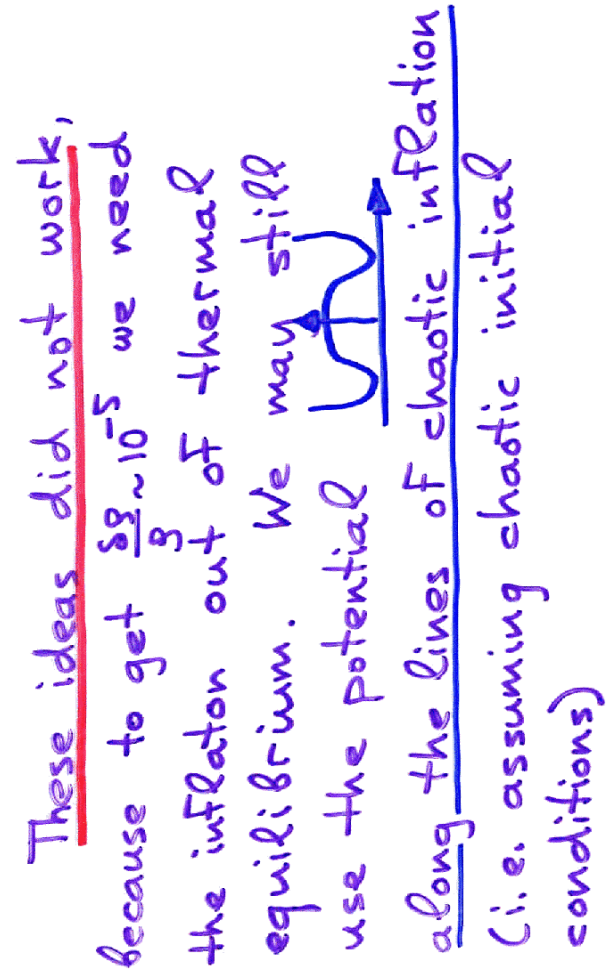 These ideas did not work,
because to get δρ/ρ ~ 10⁻⁵ we need
the inflaton out of thermal
equilibrium. We may still
use the potential
along the lines of chaotic inflation
(i.e. assuming chaotic initial
conditions)